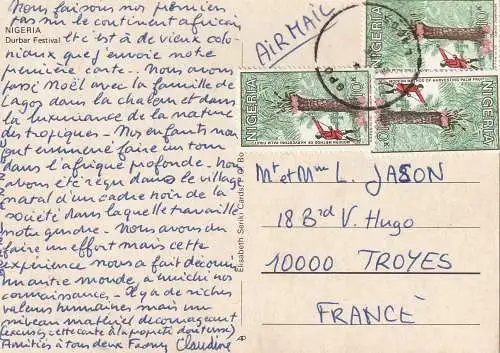 Nous faisons nos premiers
pas sur le continent africain
NIGERIA
Durbar Festival
et c'est à de vieux colo-
niaux que j'envoie notre
première carte.. Nous avons
passé Noël avec la famille de
Lagos dans la chaleur et dans
la luxuriance de la nature
des tropiques - Nos enfants nous
ont emmené faire un tour
dans l'afrique profonde. Nous
avons été reçu dans le village
natal d'un cadre noir de la
société dans laquelle travaille
notre gendre. Nous avons du
faire un effort mais cette
expérience nous a fait découvrir
un autre monde, a enrichi nos
connaissances - Il y a de riches
valeurs humaines mais un
niveau matériel décourageant
(excusez cette carte à la propreté douteuse)
Amitiés à tous deux Fanny Claudine
AIR MAIL
GPO
NIGERIA
10K
NIGERIA
10K
MODERN METHOD OF HARVESTING PALM FRUITS
NIGERIA
10K
MODERN METHOD OF HARVESTING PALM FRUITS
Elisabeth Seriki Cards
Mr et Mme L. JASON
18 Brd V. Hugo
10000 TROYES
FRANCE